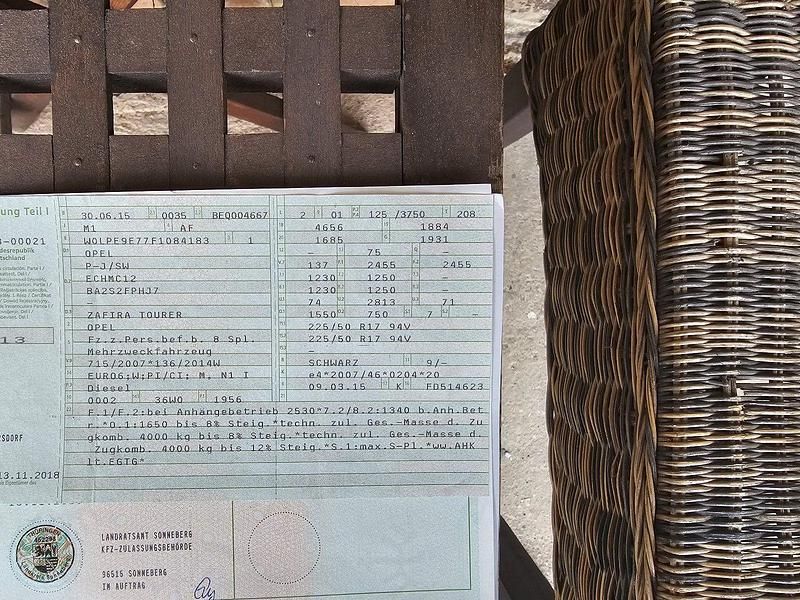 ung Teil I
-00021
desrepublik
tschland
13
RSDORF
13.11.2018
30.06.15 0035 BEQ004667
M1 AF
W0LPE9E77F1084183 1
OPEL
P-J/SW
ECHMC12
BA2S2FPHJ7
-
ZAFIRA TOURER
OPEL
Fz.z.Pers.bef.b. 8 Spl.
Mehrzweckfahrzeug
715/2007*136/2014W
EURO6;W;PI/CI; M, N1 I
Diesel
0002 36W0 1956
2 01 125 /3750 208
4656 1884
1685 1931
- 75 -
137 2455 2455
1230 1250 -
1230 1250 -
74 2813 71
1550 750 7 -
225/50 R17 94V
225/50 R17 94V
-
SCHWARZ 9/-
e4*2007/46*0204*20
09.03.15 K FD514623
F.1/F.2:bei Anhängebetrieb 2530*7.2/8.2:1340 b.Anh.Bet
r.*O.1:1650 bis 8% Steig.*techn. zul. Ges.-Masse d. Zu
gkomb. 4000 kg bis 8% Steig.*techn. zul. Ges.-Masse d.
Zugkomb. 4000 kg bis 12% Steig.*S.1:max.S-Pl.*ww.AHK
lt.EGTG*
THÜRINGEN
LANDRATSAMT SONNEBERG
KFZ-ZULASSUNGSBEHÖRDE
96515 SONNEBERG
IM AUFTRAG